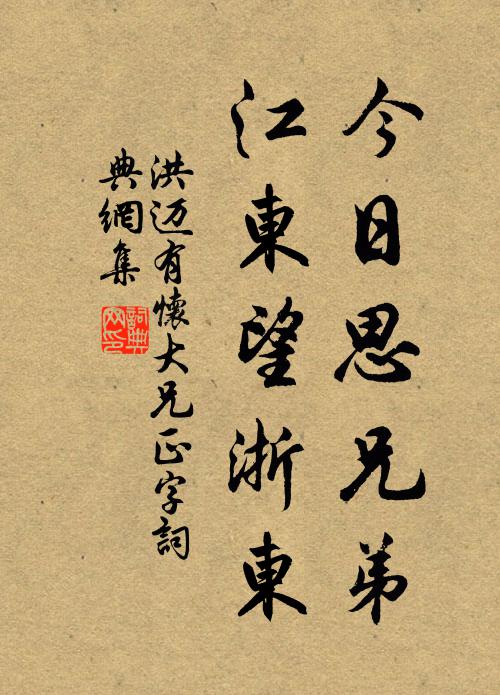 今日思兄弟
江東望浙東
洪迈有懷大兄正字詞
典網集
詞典
网印